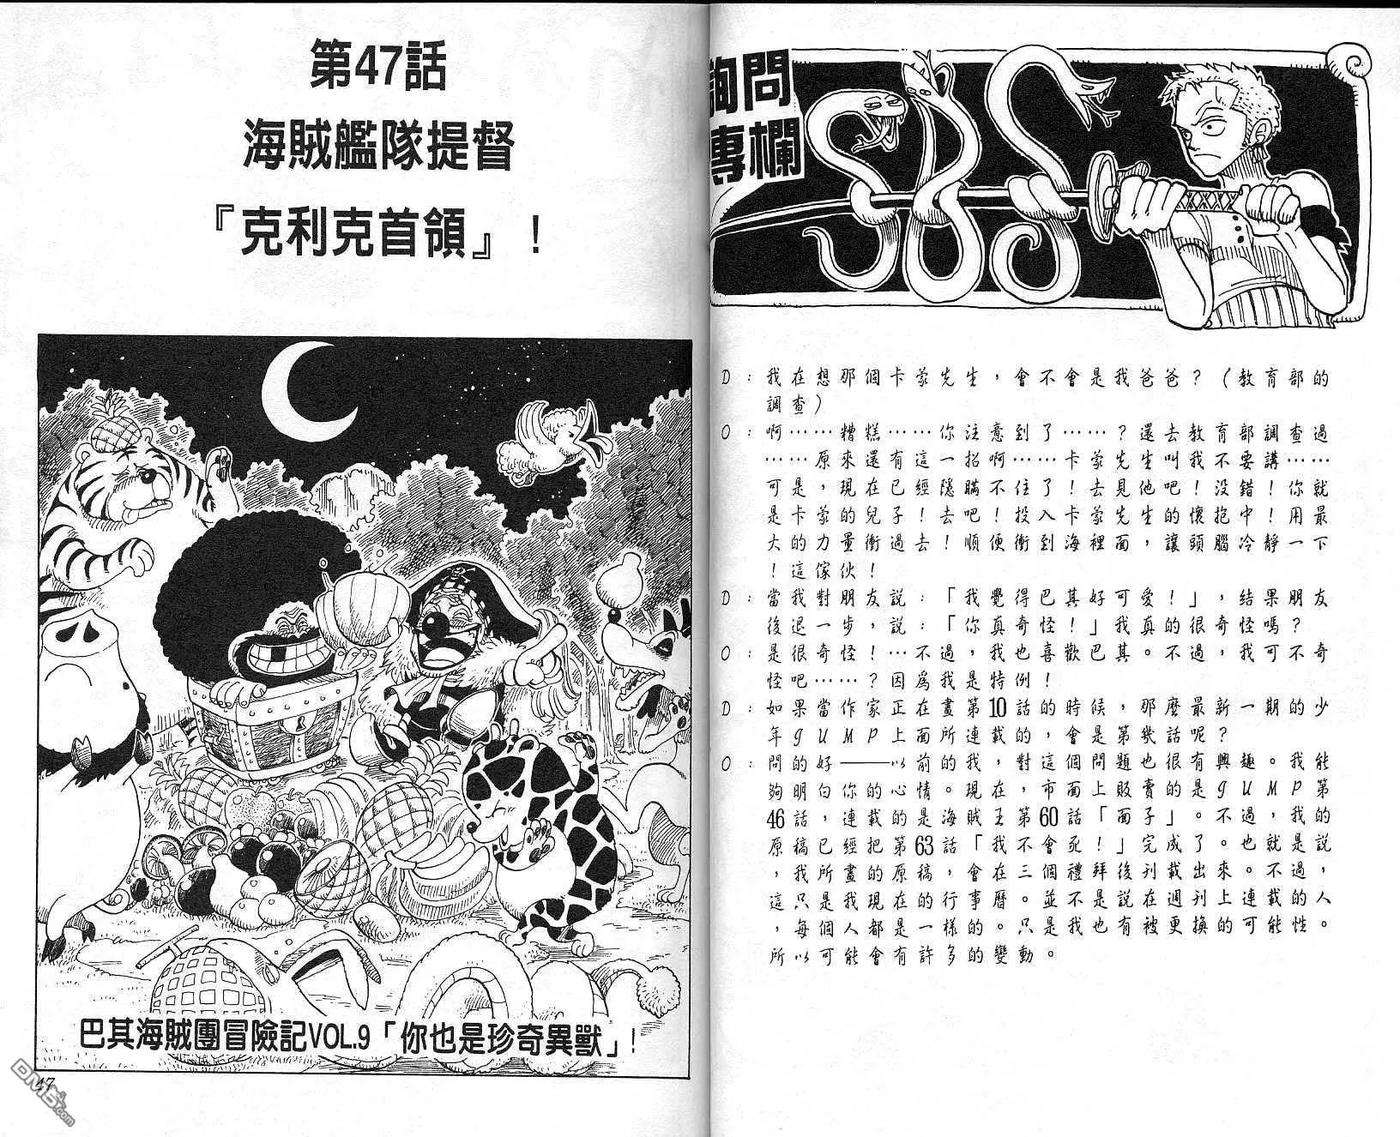 詢問
專欄
SBS
D：我在想那個卡蒙先生，會不會是我爸爸？（教育部的
調查）
O：啊……糟糕……你注意到了……？還去教育部調查過
……原來還有這一招啊……卡蒙先生叫我不要講……
可是，現在已經隱瞞不住了！去見他吧！沒錯！你就
是卡蒙的兒子！去吧！投入卡蒙先生的懷抱中！用最
大的力量衝過去！順便衝到海裡面，讓頭腦冷靜一下
！這傢伙！
D：當我對朋友說：「我覺得巴其好可愛！」，結果朋友
後退一步，說：「你真奇怪！」我真的很奇怪嗎？
O：是很奇怪！…不過，我也喜歡巴其。不過，我可不奇
怪吧……？因為我是特例！
D：如果當作家正在畫第10話的時候，那麼最新一期的少
年JUMP上面所連載的，會是第幾話呢？
O：問的好——以前的我，對這個問題也很有興趣。我能
夠明白你的心情。現在，市面上販賣的是JUMP第
46話，連載的是海賊王第60話「面子」。不過，我的
原稿已經把第63話「我不會死！」完成了。也就是說
，我所畫的原稿，會在三個禮拜後刊載出來。不過，
這只是我現在的行事曆。並不是說在週刊上連載的人
，每個人都是一樣的。只是我也有被更換的可能性。
所以可能會有許多的變動。
第47話
海賊艦隊提督
『克利克首領』！
巴其海賊團冒險記VOL.9「你也是珍奇異獸」！
47